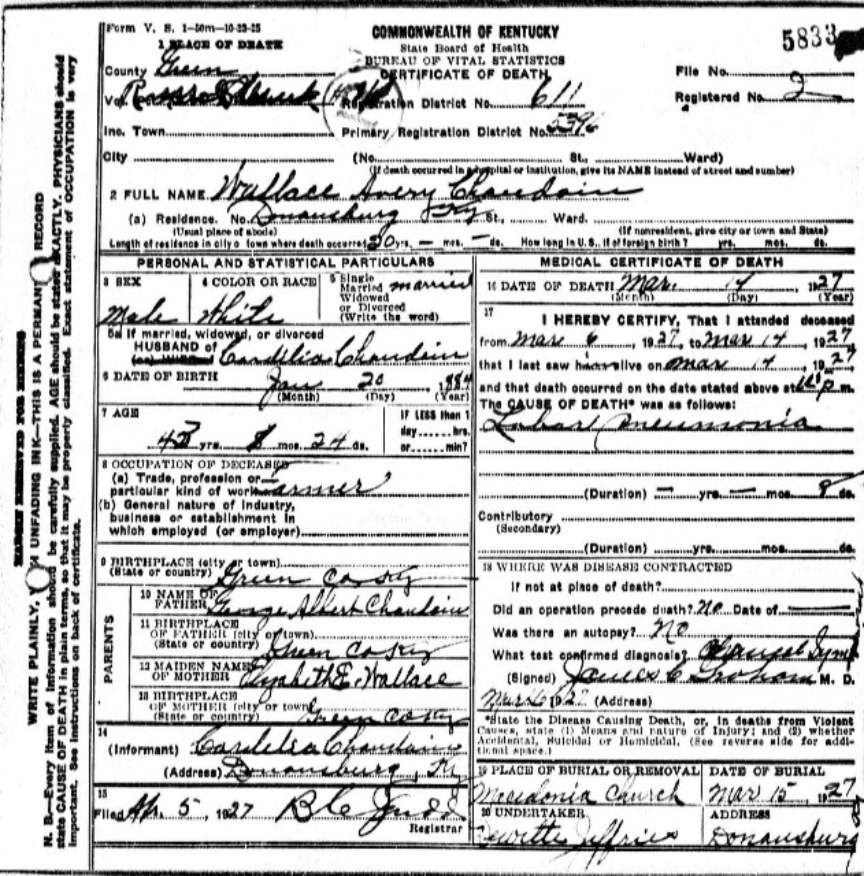 Form V. S. 1-50m-10-23-25
COMMONWEALTH OF KENTUCKY
State Board of Health
BUREAU OF VITAL STATISTICS
CERTIFICATE OF DEATH
5833
File No.
Registered No. 2
1 PLACE OF DEATH
County Green
Registration District No. 611
Inc. Town
Primary Registration District No. 5396
City (No. St., Ward)
(If death occurred in a hospital or institution, give its NAME instead of street and number)
2 FULL NAME Wallace Avery Chaudoin
(a) Residence. No. Donansburg Ky St., Ward.
(Usual place of abode) (If nonresident, give city or town and State)
Length of residence in city o town where death occurred 20 yrs. — mos. — ds. How long in U.S., if of foreign birth? yrs. mos. ds.
PERSONAL AND STATISTICAL PARTICULARS
3 SEX Male
4 COLOR OR RACE White
5 Single Married Widowed or Divorced (Write the word) married
5a If married, widowed, or divorced
HUSBAND of Cardelia Chaudoin
6 DATE OF BIRTH Jan 20, 1884
(Month) (Day) (Year)
7 AGE
yrs. mos. 24 ds.
IF LESS than 1
day hrs.
or min?
8 OCCUPATION OF DECEASED
(a) Trade, profession or
particular kind of work Farmer
(b) General nature of industry,
business or establishment in
which employed (or employer)
9 BIRTHPLACE (city or town)
(State or country) Green Co Ky
PARENTS
10 NAME OF
FATHER George Albert Chaudoin
11 BIRTHPLACE
OF FATHER (city or town)
(State or country) Green Co Ky
12 MAIDEN NAME
OF MOTHER Elizabeth E. Wallace
13 BIRTHPLACE
OF MOTHER (city or town)
(State or country) Green Co Ky
14
(Informant) Cardelia Chaudoin
(Address) Donansburg, Ky
15
Filed Ap. 5, 1927
Registrar
MEDICAL CERTIFICATE OF DEATH
16 DATE OF DEATH Mar. 14, 1927
(Month) (Day) (Year)
17
I HEREBY CERTIFY, That I attended deceased
from Mar 6, 1927, to Mar 14, 1927
that I last saw him alive on Mar 14, 1927
and that death occurred on the date stated above at p m.
The CAUSE OF DEATH* was as follows:
Lobar Pneumonia
(Duration) — yrs. — mos. 8 ds.
Contributory
(Secondary)
(Duration) yrs. mos. ds.
18 WHERE WAS DISEASE CONTRACTED
If not at place of death?
Did an operation precede death? No Date of
Was there an autopsy? No
What test confirmed diagnosis? Clinical Symp
(Signed) James C Graham M. D.
1927 (Address)
*State the Disease Causing Death, or, in deaths from Violent
Causes, state (1) Means and nature of Injury; and (2) whether
Accidental, Suicidal or Homicidal. (See reverse side for addi-
tional space.)
19 PLACE OF BURIAL OR REMOVAL Macedonia Church
DATE OF BURIAL Mar 15, 1927
20 UNDERTAKER Dewitte Jeffries
ADDRESS Donansburg
MARGIN RESERVED FOR BINDING
WRITE PLAINLY, UNFADING INK—THIS IS A PERMAN RECORD
N. B.—Every item of information should be carefully supplied. AGE should be stated EXACTLY. PHYSICIANS should
state CAUSE OF DEATH in plain terms, so that it may be properly classified. Exact statement of OCCUPATION is very
important. See instructions on back of certificate.